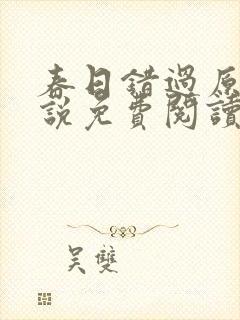 春日錯過原
說免費閱讀
吴雙